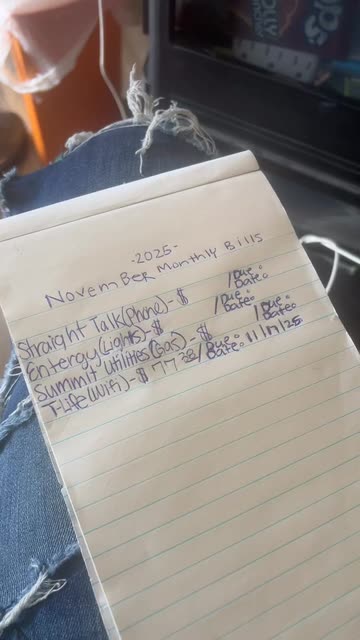 -2025-
November Monthly Bills
Straight Talk(Phone)-$ /Due Date:
Entergy(Lights)-$ /Due Date:
Summit Utilities(Gas)-$ /Due Date:
T-Life(Wifi)-$77.38/Due Date: 11/17/25